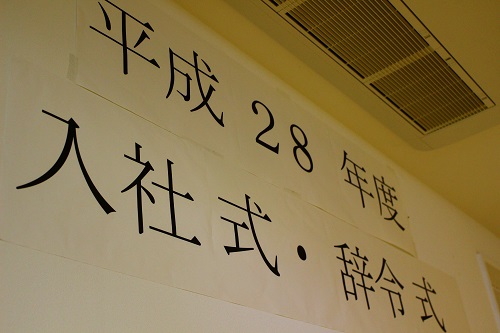 平成 28 年度
入社式・辞令式